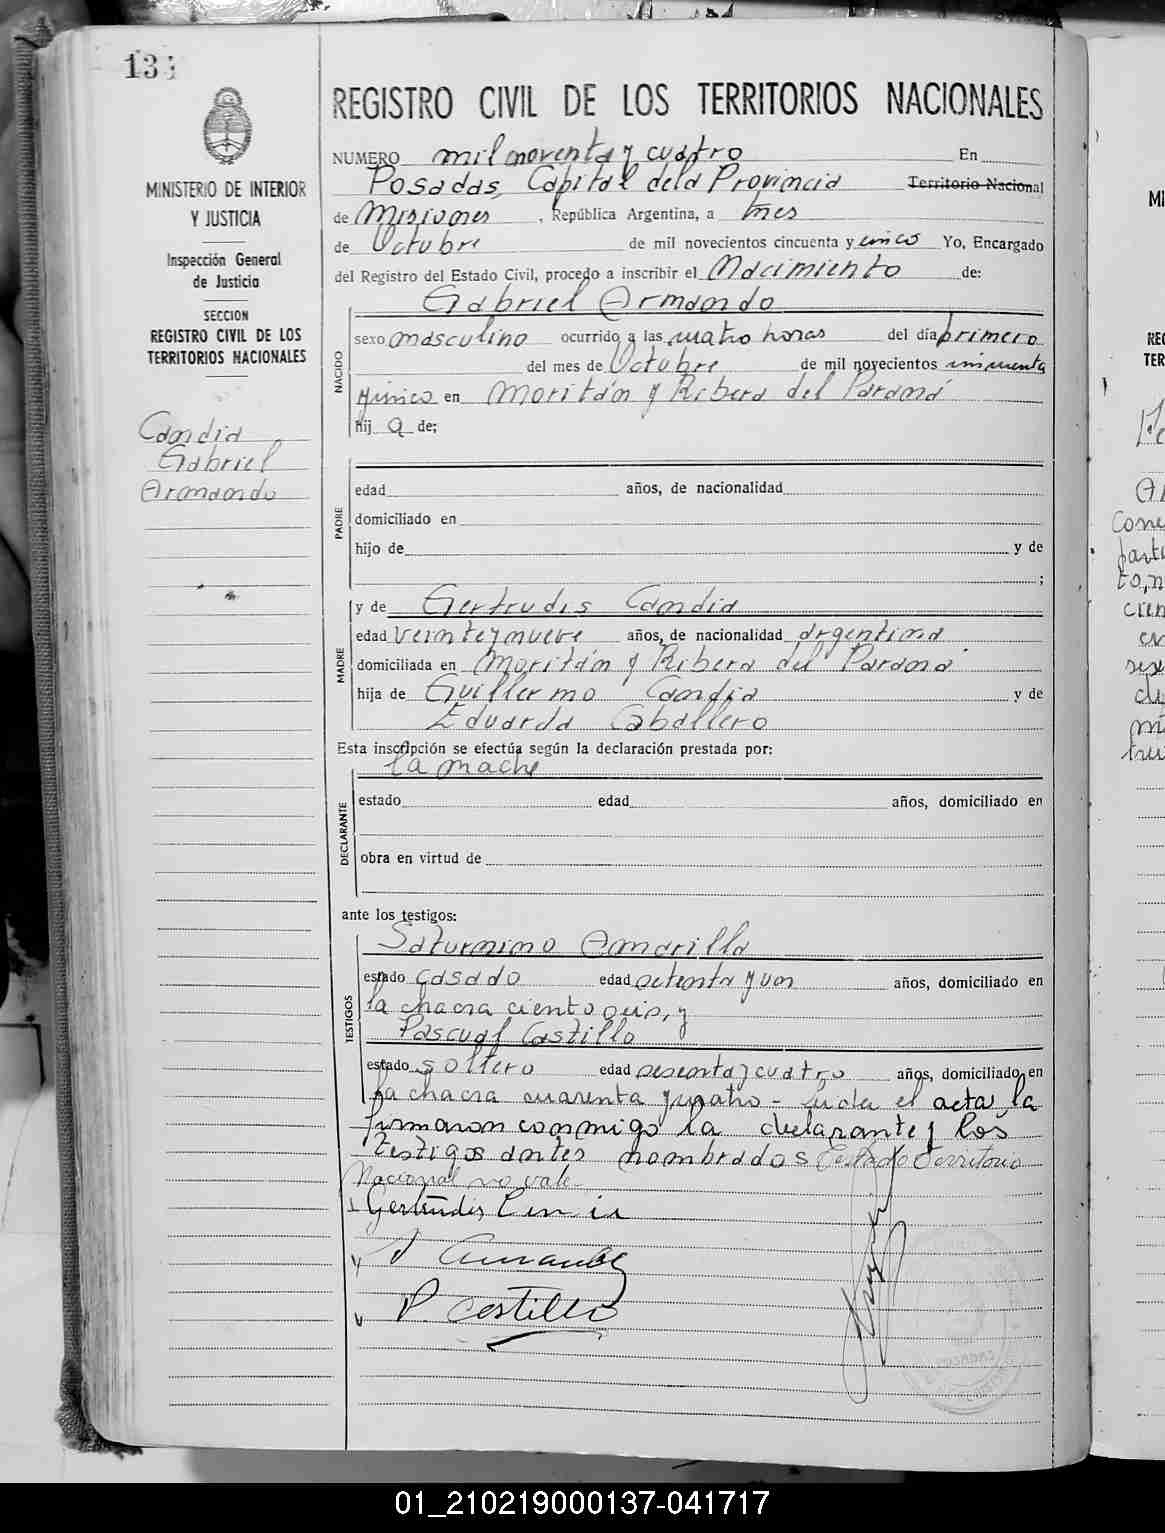 13
REGISTRO CIVIL DE LOS TERRITORIOS NACIONALES
MINISTERIO DE INTERIOR
Y JUSTICIA
Inspección General
de Justicia
SECCION
REGISTRO CIVIL DE LOS
TERRITORIOS NACIONALES
Candia
Gabriel
Armando
NUMERO mil noventa y cuatro En
Posadas, Capital de la Provincia Territorio Nacional
de Misiones, República Argentina, a tres
de Octubre de mil novecientos cincuenta y cinco Yo, Encargado
del Registro del Estado Civil, procedo a inscribir el Nacimiento de:
Gabriel Armando
NACIDO
sexo masculino ocurrido a las cuatro horas del día primero
del mes de Octubre de mil novecientos cincuenta
y cinco en Moritán y Ribera del Paraná
hij o de;
PADRE
edad años, de nacionalidad
domiciliado en
hijo de y de
;
MADRE
y de Gertrudis Candia
edad veinte y nueve años, de nacionalidad argentina
domiciliada en Moritán y Ribera del Paraná
hija de Guillermo Candia y de
Eduarda Caballero
Esta inscripción se efectúa según la declaración prestada por:
la madre
DECLARANTE
estado edad años, domiciliado en
obra en virtud de
ante los testigos:
TESTIGOS
Saturnino Amarilla
estado casado edad setenta y un años, domiciliado en
la chacra ciento seis, y
Pascual Castillo
estado soltero edad sesenta y cuatro años, domiciliado en
la chacra cuarenta y cuatro - Leída el acta, la
firmaron conmigo la declarante y los
testigos antes nombrados Testado: Territorio
Nacional no vale-
Gertrudis
P. Castillo
POSADAS
01_210219000137-041717